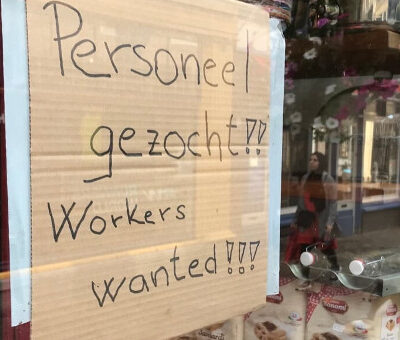 Personeel
gezocht!!
Workers
wanted!!!